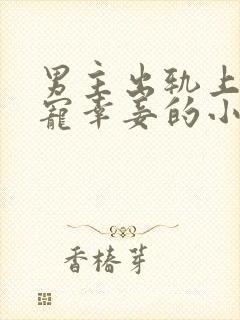 男主出轨上
宠幸妾的小
香椿芽